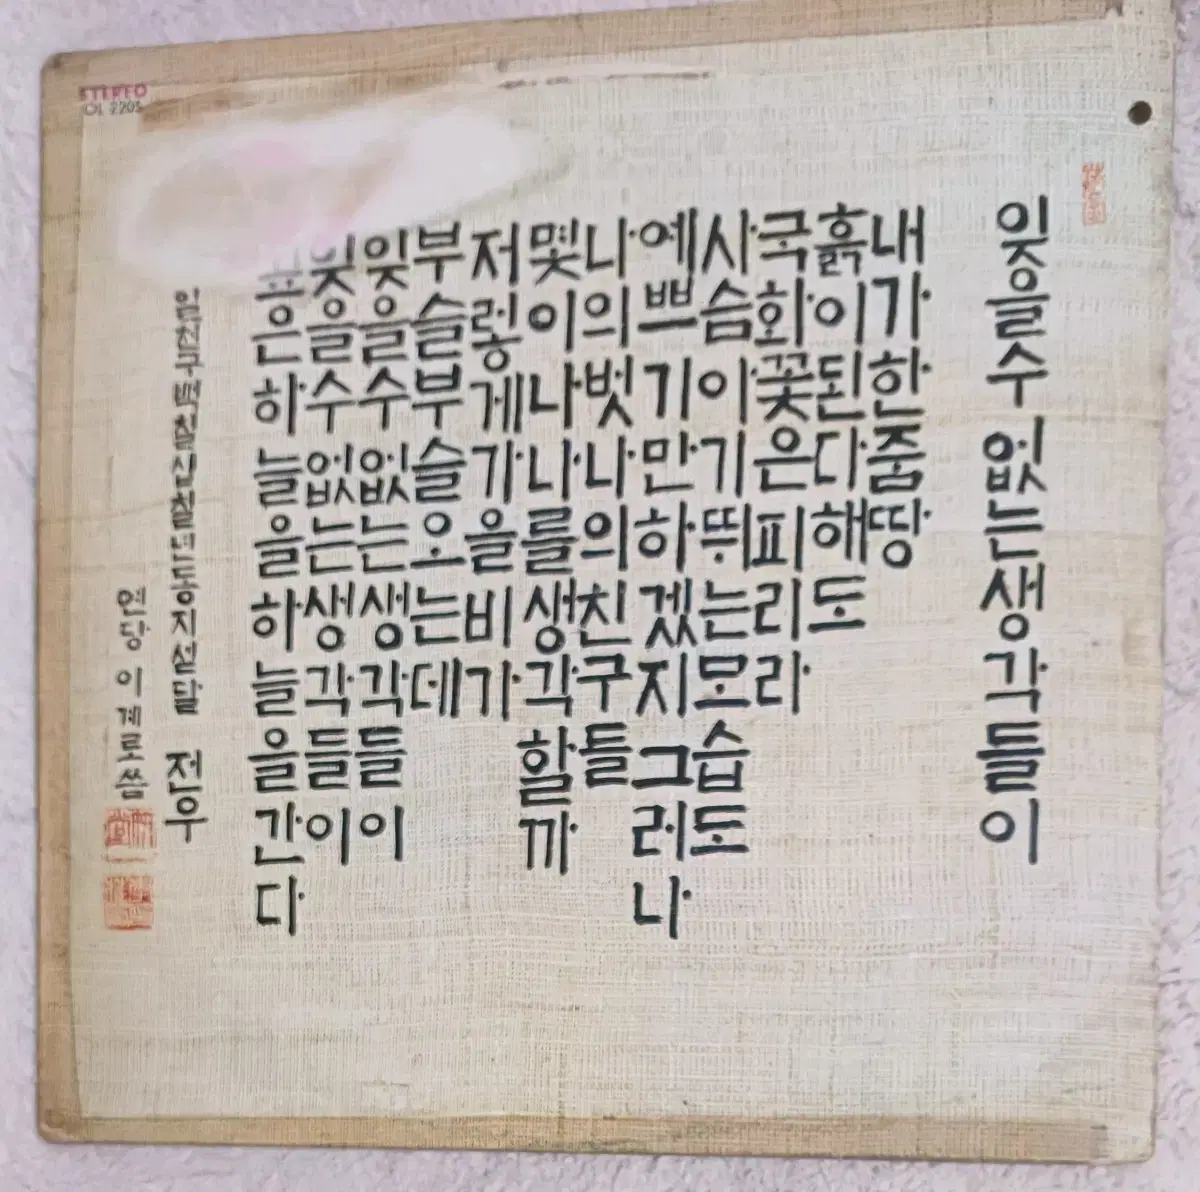 STEREO
OL 2205
잊을수 없는생각들이
내가한줌땅
흙이된다해도
국화꽃은피리라
사슴이기뛰는모습도
예쁘기만하겠지그러나
나의벗나의친구들
몇이나나를생각할까
저렇게가을비가
부슬부슬오는데
잊을수없는생각들이
잊을수없는생각들이
하늘을하늘을간다
일천구백칠십칠년동지섣달 전우
연당 이계로씀